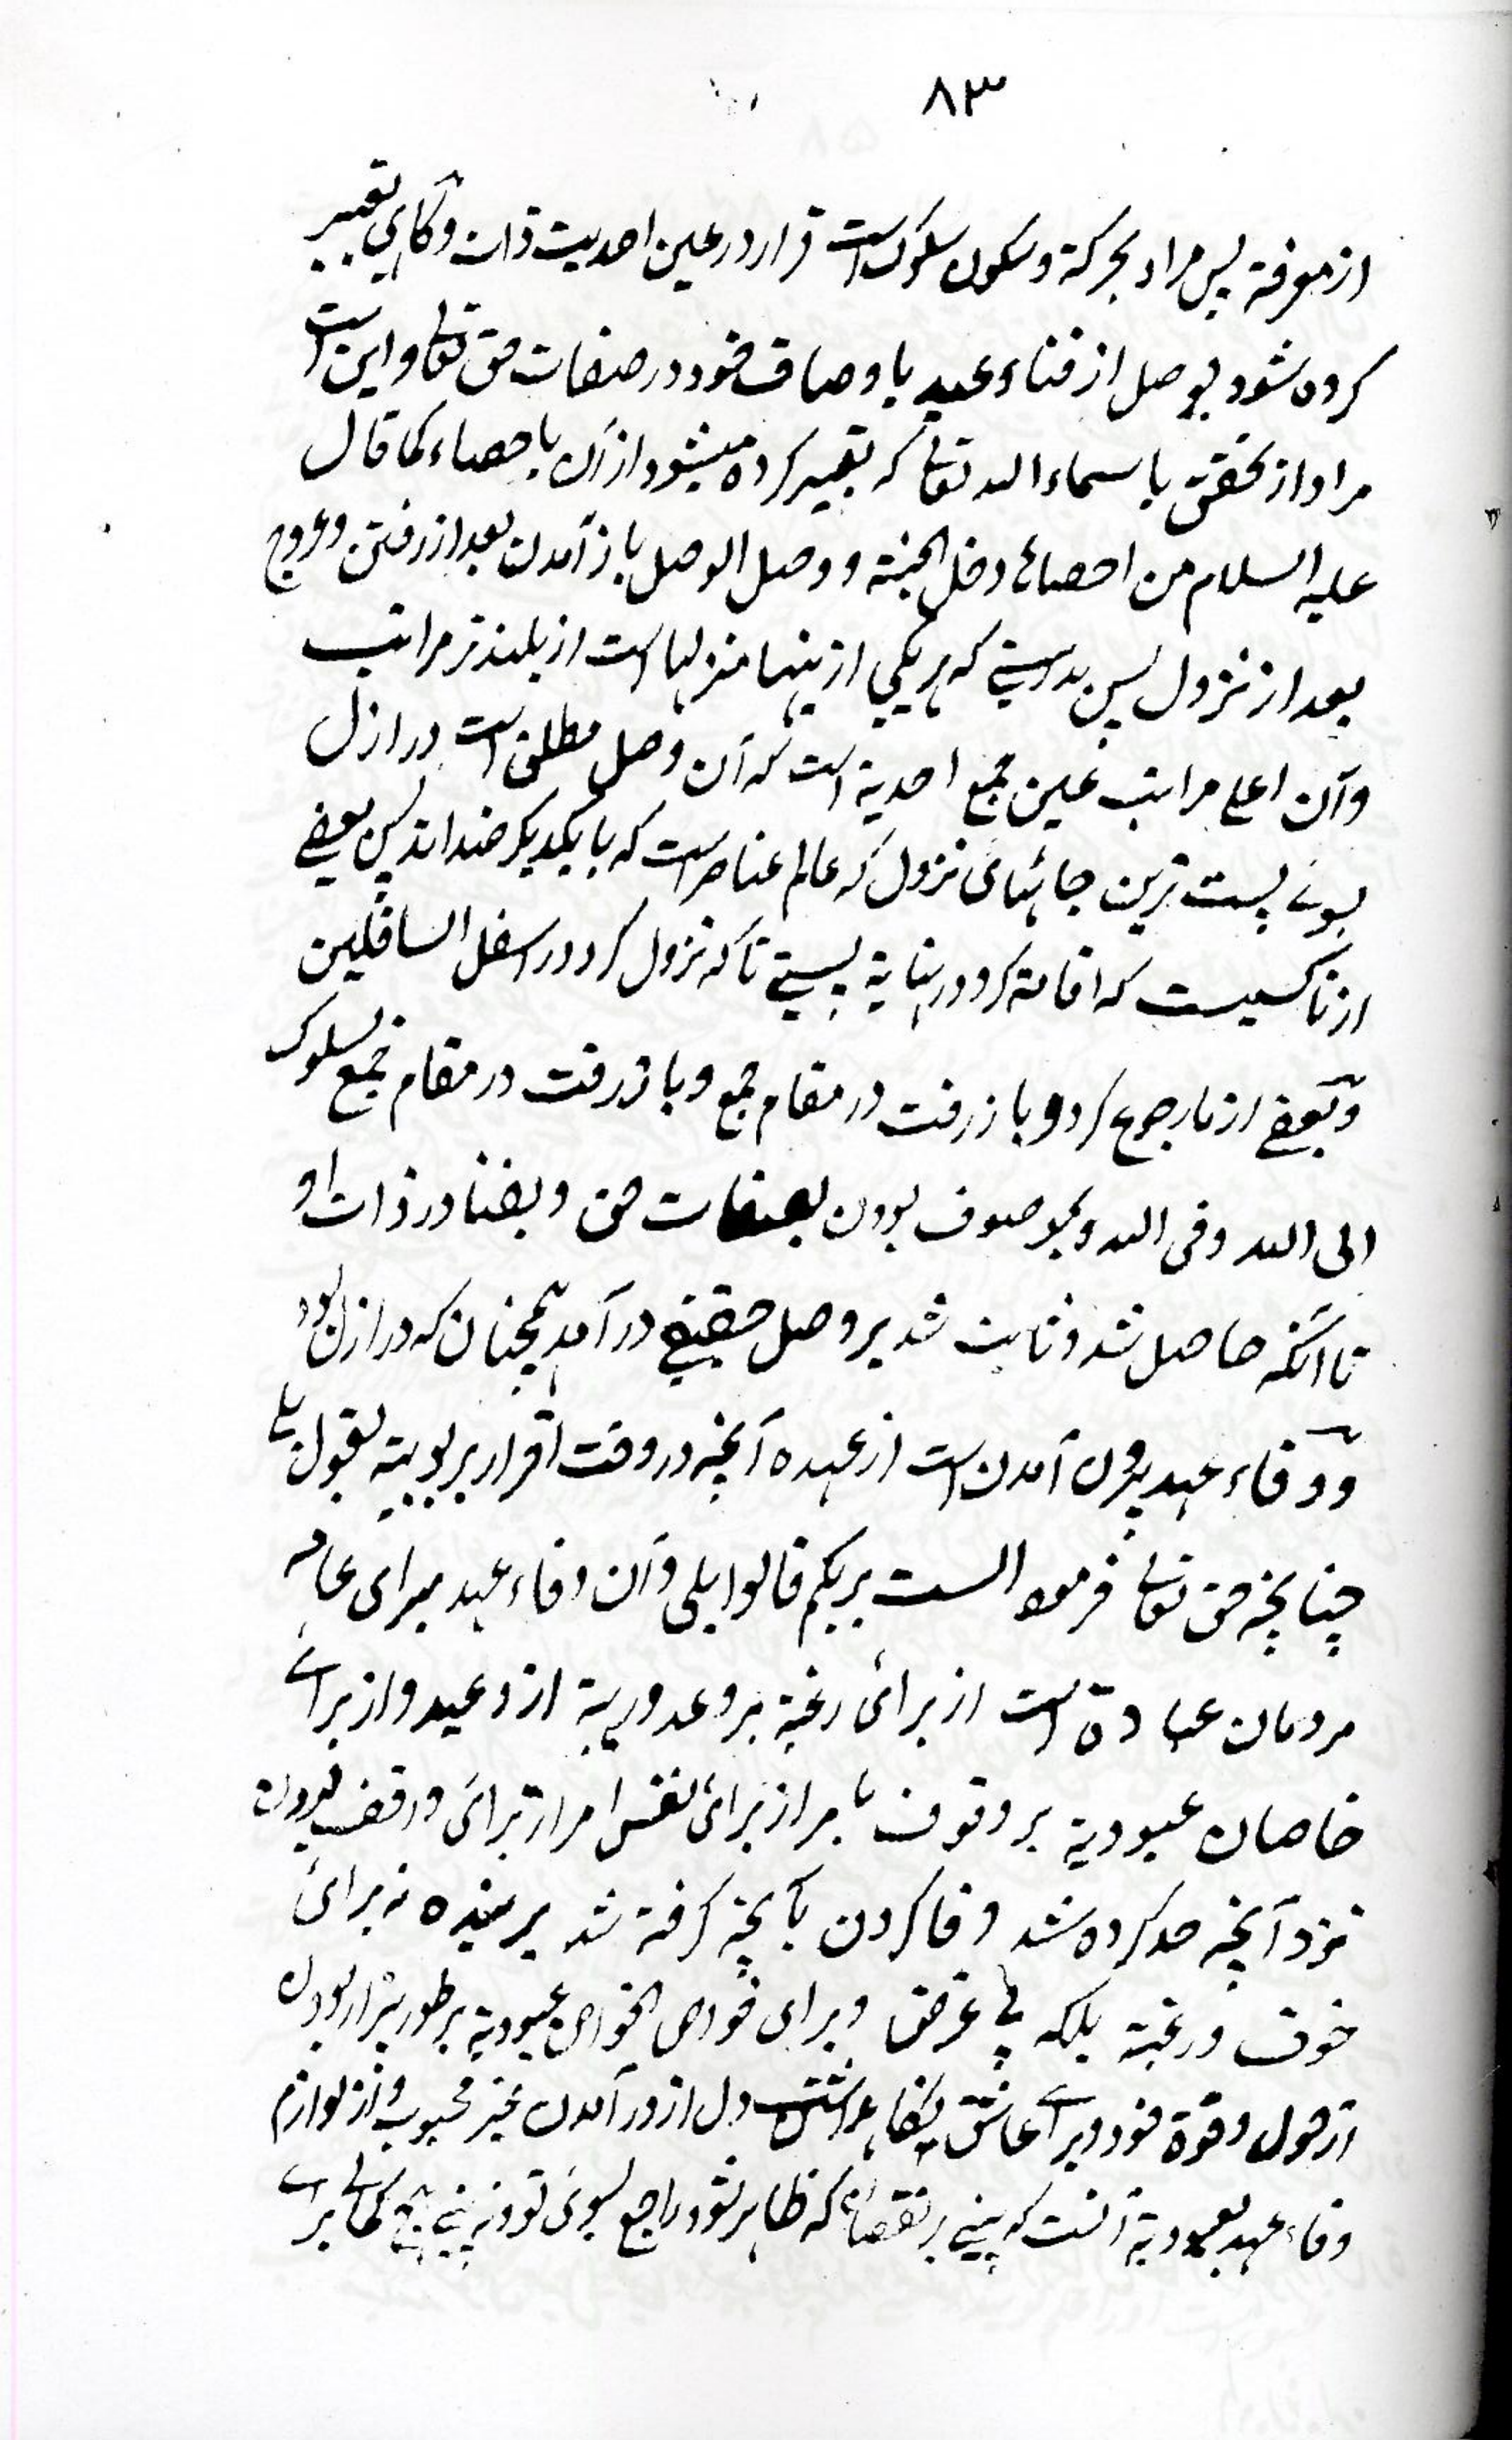 ۸۳
از معرفة پس مراد بحركة و سكون سلوك است و قرار در عين احديت ذات و گاهي تعبير
كرده شود بوصل از فناء عبد باوصاف خود در صفات حق تعالى و اين است
مراد از تحقق باسماء الله تعالى كه تعبير كرده ميشود از آن باحصاء كما قال
عليه السلام من احصاها دخل الجنة و وصل الوصل باز آمدن بعد از رفتن و عروج
بعد از نزول پس بدرستے كه هر يكي ازينها منزلها است از بلندتر مراتب
وآن اعلى مراتب عين جمع احدية است كه آن وصل مطلق است در ازل
بسوئے پست ترين جائهاى نزول كه عالم عناصر است كه با يكديگر ضد اند پس بعضے
ازنا كسيست كه اقامة كرد در نهاية پستے تا كه نزول كرد در اسفل السافلين
وبعضے ازما رجوع كرد و باز رفت در مقام جمع و باز رفت در مقام جمع بسلوك
الى الله و فى الله و بموصوف بودن بصفات حق و بفنا در ذات او
تا آنكه حاصل شد و ثابت شد بر وصل حقيقے در آمد همچنان كه در ازل بود
و وفاء عهد برون آمدن است از عهده آنچه در وقت اقرار بربوبية بقول بلے
چنانچه حق تعالى فرمود الست بربكم قالوا بلى و آن وفاء عهد براى عامه
مردمان عبادة است از برائ رغبة بر وعد و رهبة از وعيد و از براے
خاصان عبودية بر وقوف بامر از برائ نفس امر از برائ وقف بودن
نزد آنچه حد كرده شد و وفا كردن بآنچه گرفته شد بر بنده نه برائ
خوف و رغبة بلكه بے غرض و براى خواص الخواص عبودية بر طور بيزار بودن
از حول و قوة خود و براے عاشق نگاهداشتن دل از در آمدن غير محبوب و از لوازم
وفاء عهد بعبودية آنست كه بينے هر نقصان كه ظاهر شود راجع بسوئ تو و نه بينے هيچ كمالے براے